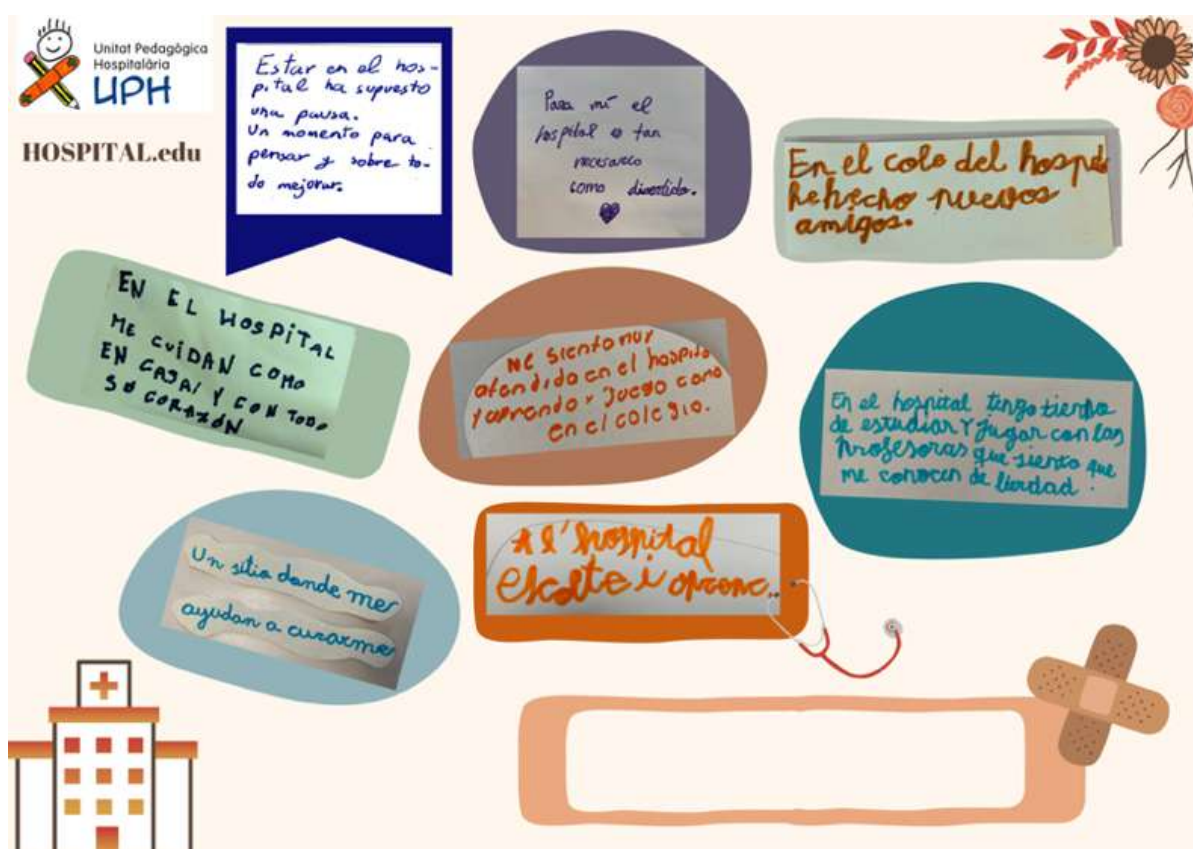 Unitat Pedagògica
Hospitalària
UPH
HOSPITAL.edu
Estar en el hos-
pital ha supuesto
una pausa.
Un momento para
pensar y sobre to-
do mejorar.
Para mí el
hospital es tan
necesareo
como divertido.
En el cole del hospi
he hecho nuevos
amigos.
EN EL HOSPITAL
ME CUIDAN COMO
EN CASA! Y CON TODO
SU CORAZÓN
Me siento muy
atendido en el hospital
y aprendo y juego como
en el colegio.
En el hospital tengo tiempo
de estudiar y jugar con las
profesoras que siento que
me conocen de verdad.
Un sitio donde me
ayudan a curarme
A l'hospital
escolte i aprenc..